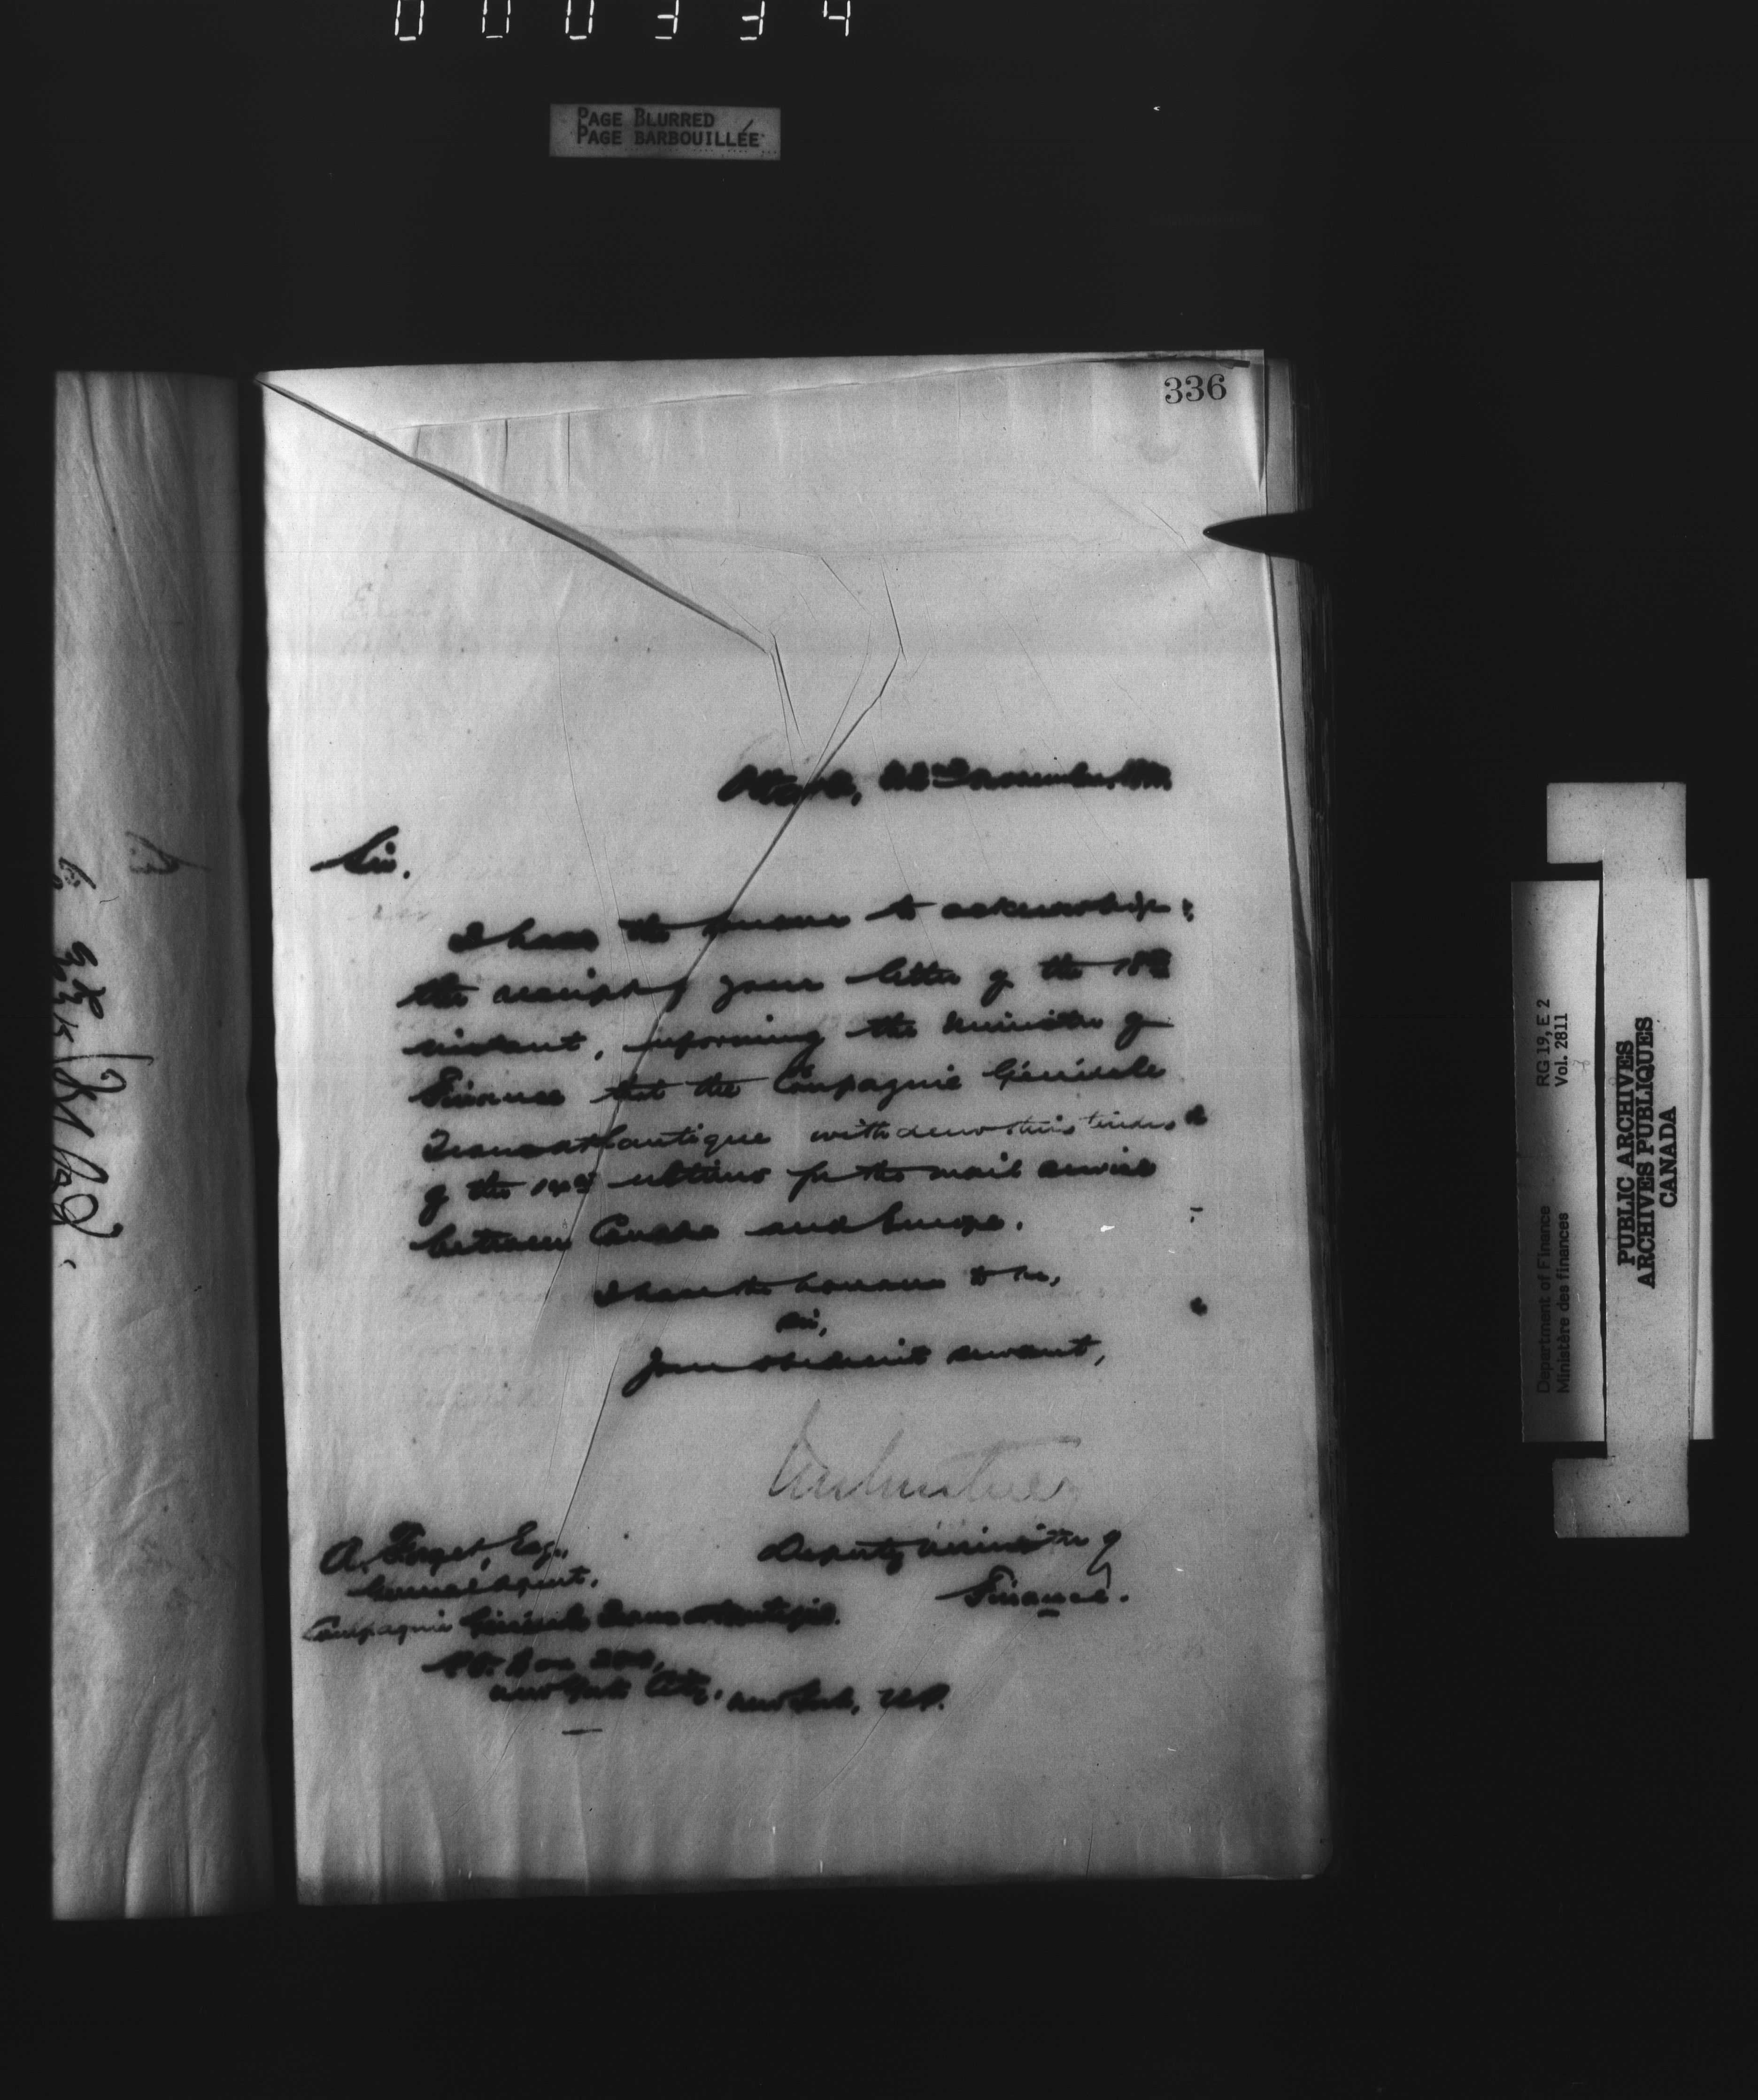 000334
PAGE BLURRED
PAGE BARBOUILLÉE
336
Ottawa, 22nd November,
Sir.
I have the honour to acknowledge
the receipt of your letter of the 18th
instant, informing the Minister of
Finance that the Compagnie Générale
Transatlantique withdraw their tender
of the 14th ultimo for the mail service
between Canada and Europe.
I have the honour to be,
Sir,
Your obedient servant,
Deputy Minister of
Finance.
A. Forget, Esq.,
General Agent,
Compagnie Générale Transatlantique.
P.O. Box
New York City, New York, U.S.
RG 19, E 2
Vol. 2811
Department of Finance
Ministère des finances
PUBLIC ARCHIVES
ARCHIVES PUBLIQUES
CANADA